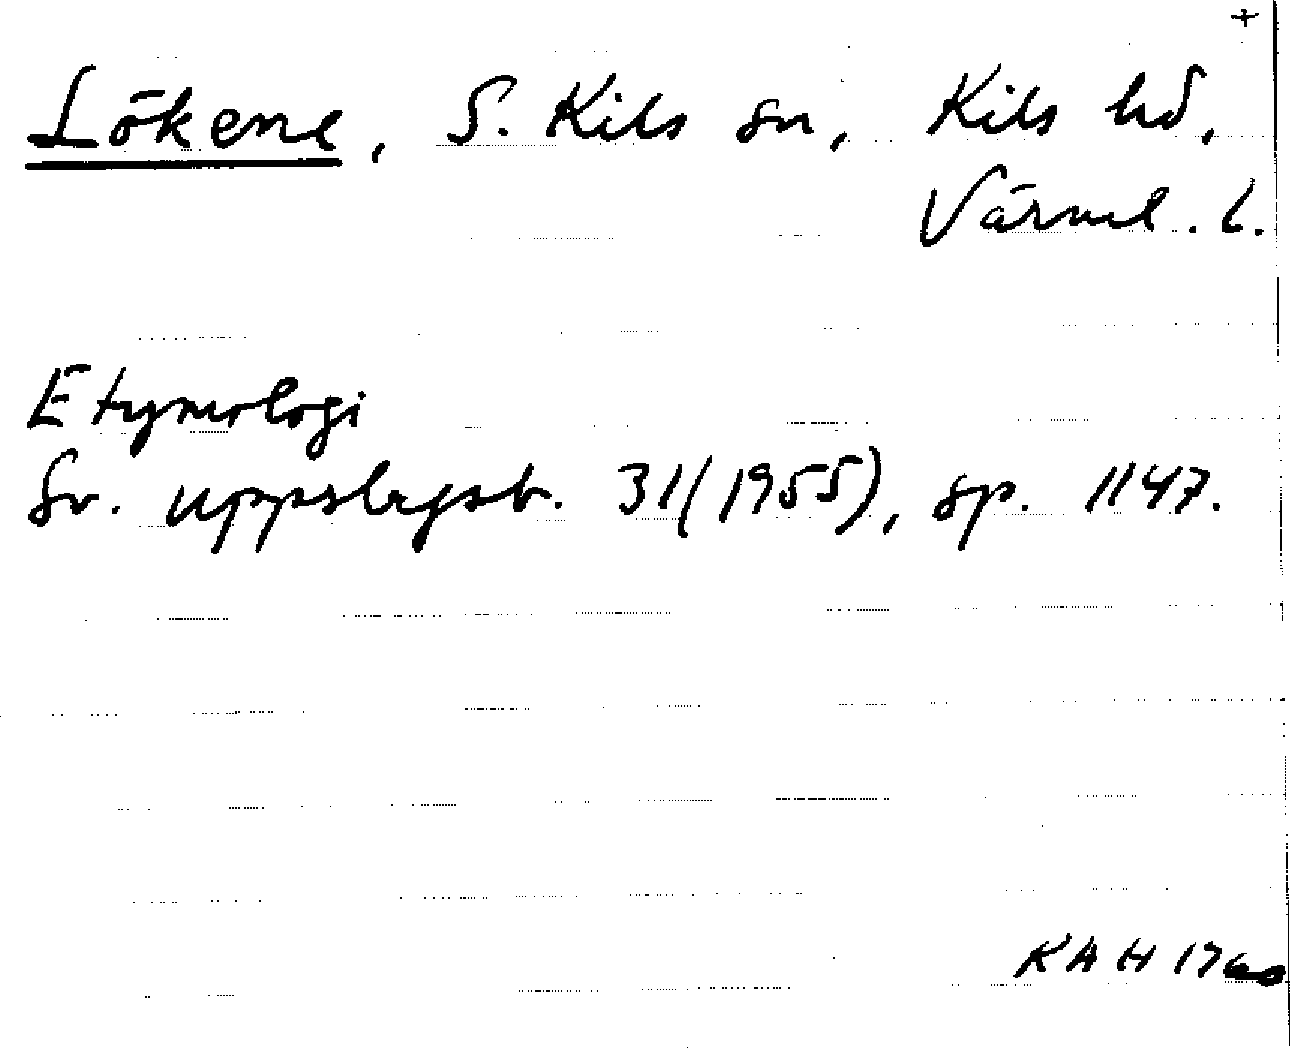 +
Lökene, S. Kils sn, Kils hd,
Värml. l.
Etymologi
Sv. uppslagsb. 31(1955), sp. 1147.
KAH